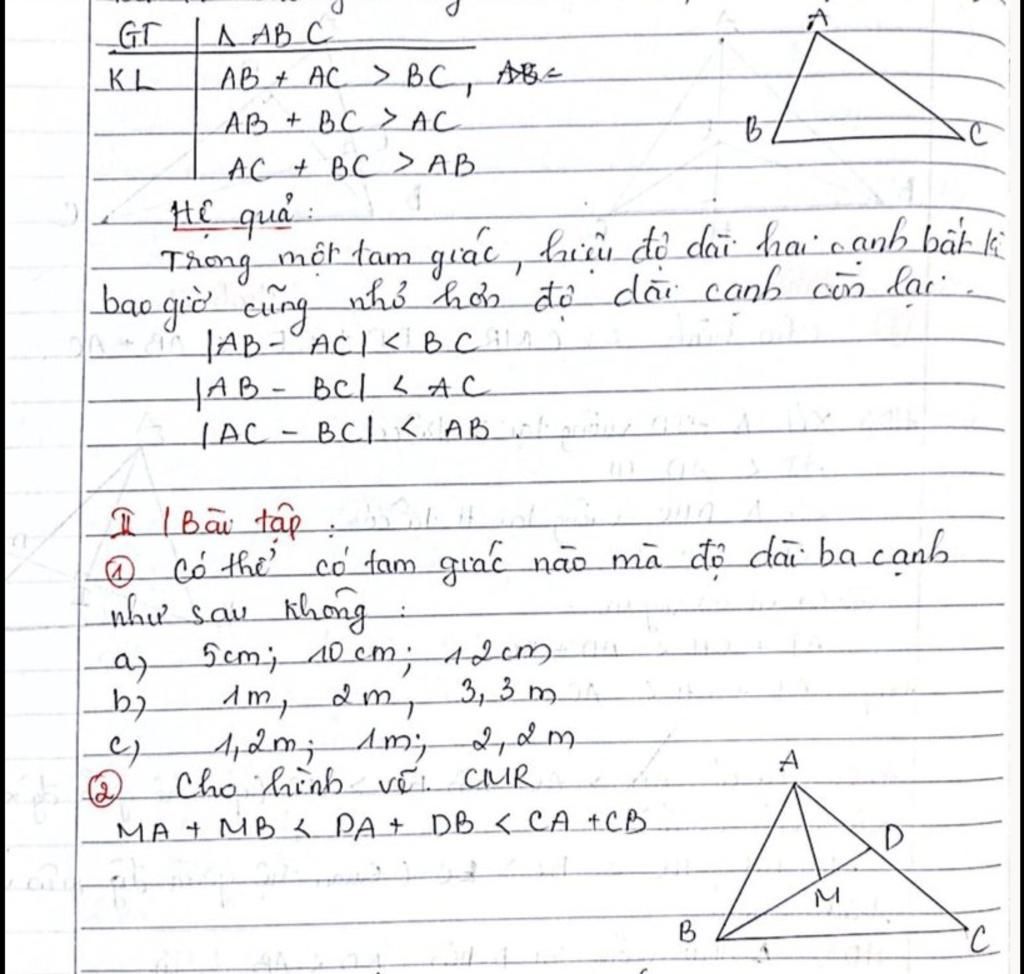 GT | Δ ABC
KL | AB + AC > BC,
AB + BC > AC
AC + BC > AB
A
B
C
Hệ quả:
Trong một tam giác, hiệu độ dài hai cạnh bất kì
bao giờ cũng nhỏ hơn độ dài cạnh còn lại.
|AB - AC| < BC
|AB - BC| < AC
|AC - BC| < AB.
II / Bài tập:
① Có thể có tam giác nào mà độ dài ba cạnh
như sau không:
a) 5cm; 10cm; 12cm
b) 1m, 2m, 3,3m
c) 1,2m; 1m; 2,2m
② Cho hình vẽ. CMR
MA + MB < DA + DB < CA + CB
A
D
M
B
C